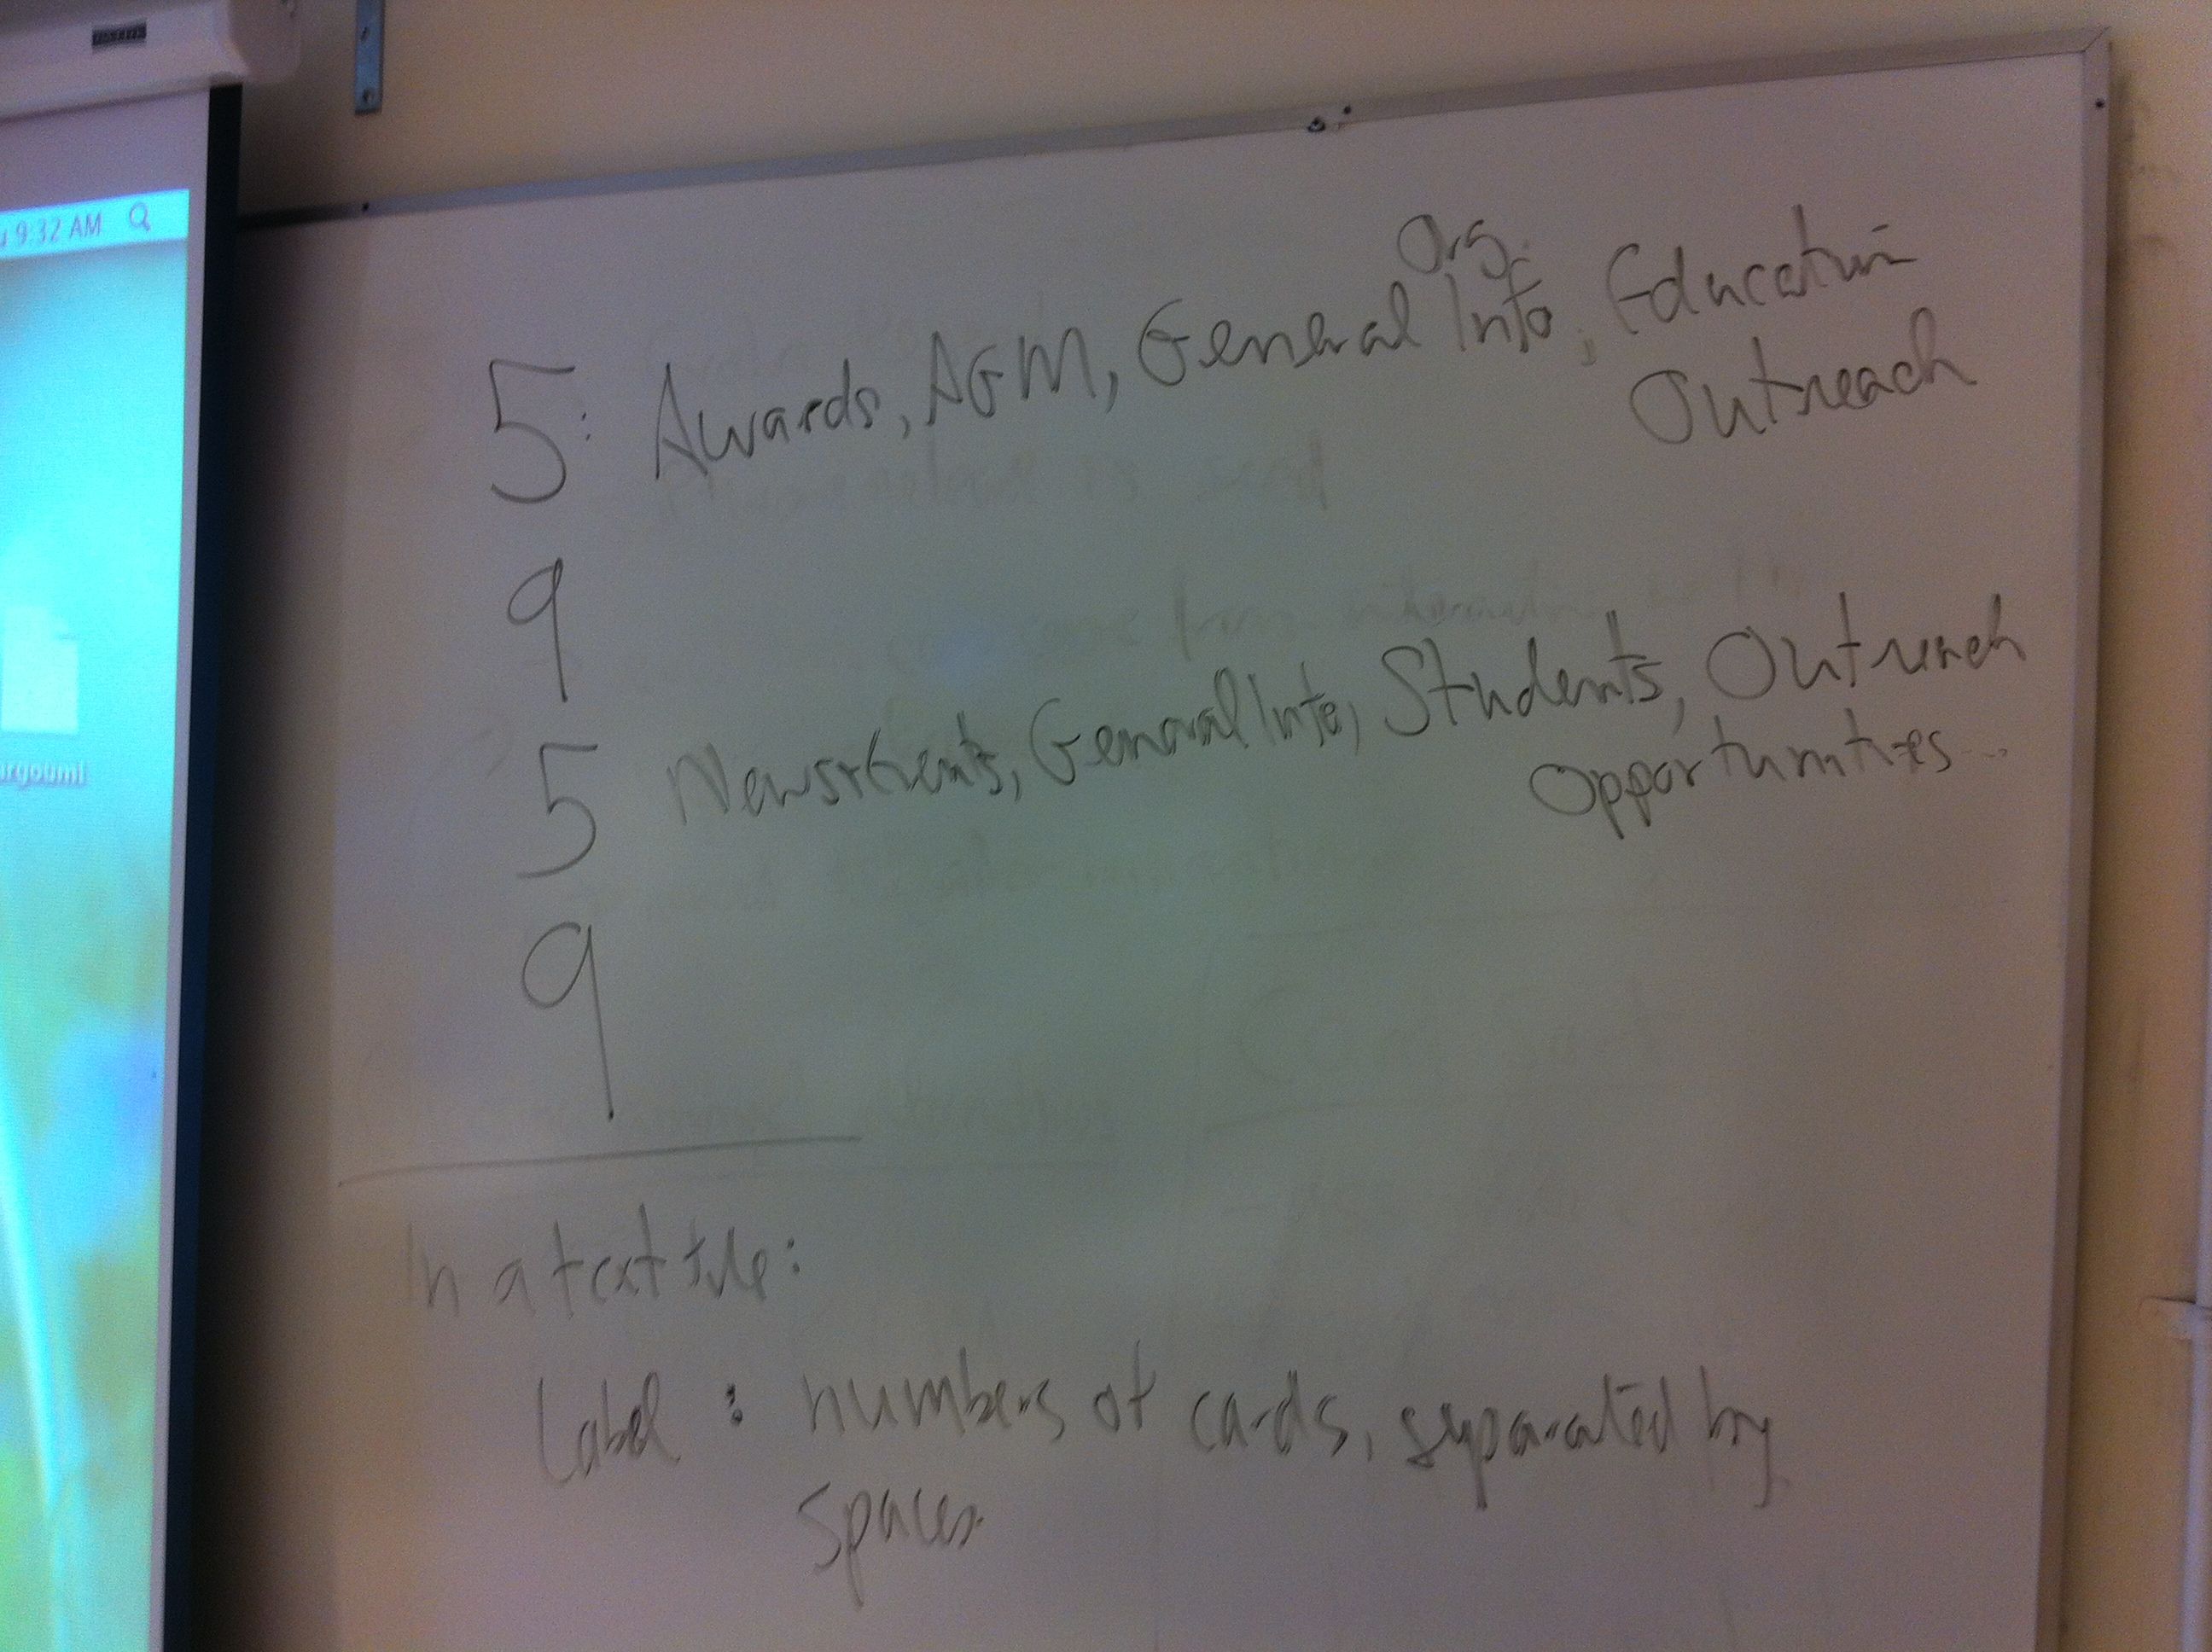 9:32 AM
Org.
5: Awards, AGM, General Info, Education
Outreach
9
5 News+Events, General Info, Students, Outreach
Opportunities...
9
In a text file:
Label : numbers of cards, separated by
spaces.